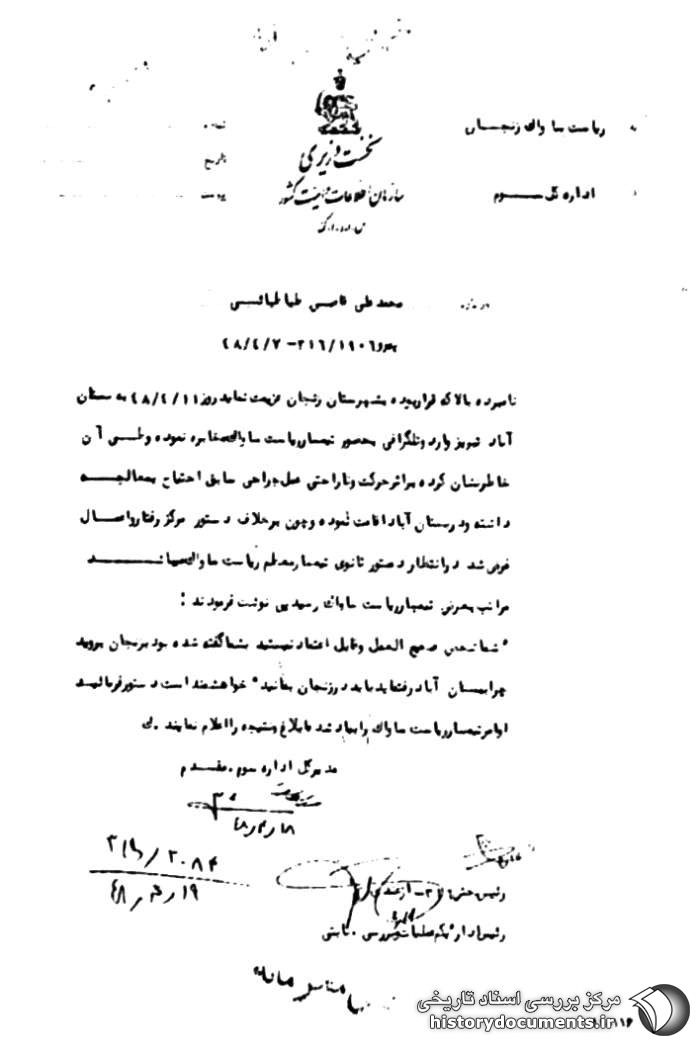 به ریاست ساواک زنجان
نخست وزیری
تاریخ
اداره کل سوم
سازمان اطلاعات و امنیت کشور
پیوست
س.ا.و.ا.ک
درباره محمد علی قاضی طباطبائی
۴۸/۴/۷ -۳۱۶/۱۹۰۶
نامبرده بالا که قرار بوده بشهرستان زنجان عزیمت نماید روز ۴۸/۴/۱۱ به بستان
آباد تبریز وارد و تلگرافی بحضور تیمسار ریاست ساواک مخابره نموده و طی آن
خاطرنشان کرده بر اثر حرکت و ناراحتی عمل جراحی سابق احتیاج بمعالجه
داشته و در بستان آباد اقامت نموده و چون بر خلاف دستور مرکز رفتار و اعمال
فرمی شد در انتظار دستور ثانوی تیمسار معظم ریاست ساواک میباشد
مراتب بعرض تیمسار ریاست ساواک رسید پی نوشت فرمودند :
"شما شخص صحیح العمل و قابل اعتماد نیستید بشما گفته شده بود بزنجان بروید
چرا ببستان آباد رفته‌اید باید در زنجان بمانید" خواهشمند است دستور فرمائید
اوامر تیمسار ریاست ساواک را بیاد شده ابلاغ و نتیجه را اعلام نمایند.ک
مدیر کل اداره سوم . مقدم
۴۸/۴/۱۸
۳۱۶/۲۰۸۴
۴۸/۴/۱۹
رئیس بخش
رئیس اداره یکم عملیات و بررسی . ثابتی
مرکز بررسی اسناد تاریخی
historydocuments.ir